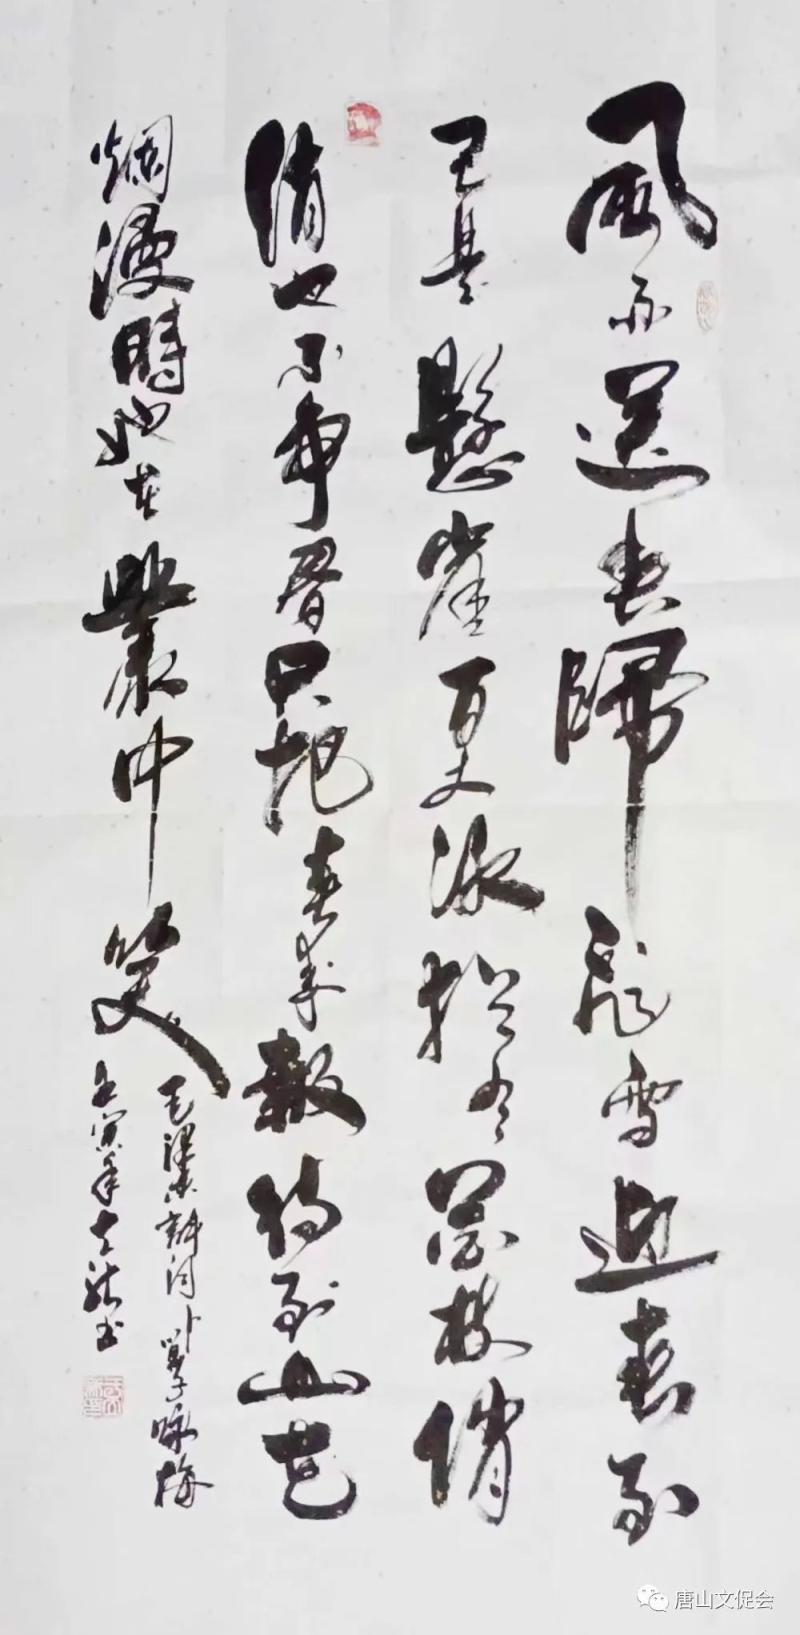 風雨送春歸飛雪迎春到
已是懸崖百丈冰猶有花枝俏
俏也不爭春只把春來報待到山花
爛漫時她在叢中笑
毛澤東詩詞卜算子咏梅
壬寅年书
唐山文促会